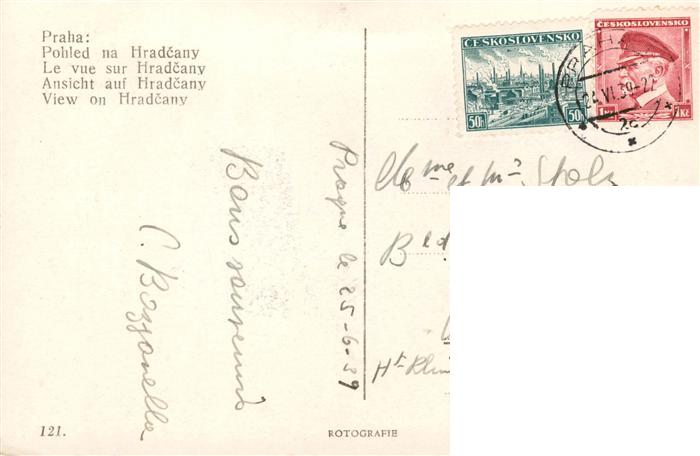 Praha:
Pohled na Hradčany
Le vue sur Hradčany
Ansicht auf Hradčany
View on Hradčany
ČESKOSLOVENSKO
50h 50h
ČESKOSLOVENSKO
PRAHA
24.VI.39-22
Prague le 25-6-39
Bons souvenirs
C. Bezzonella
Mme et Mr Stolz
Bld
Ht-Rhin
121.
ROTOGRAFIE